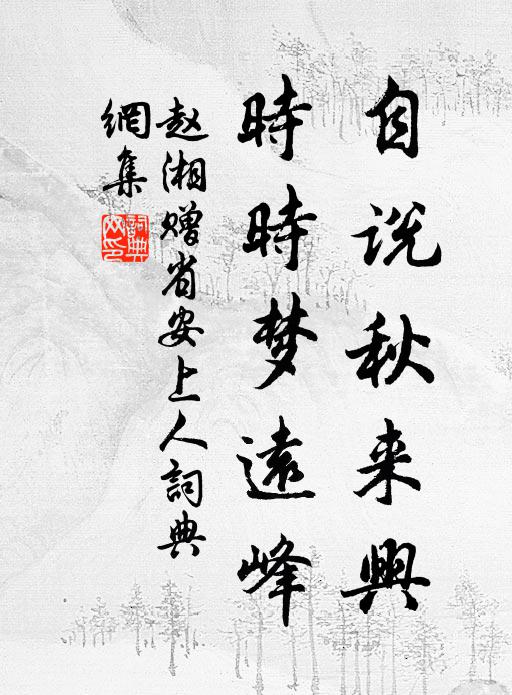 自说秋来興
時時梦遠峰
赵湘赠省安上人詞典
網集
詞典網印